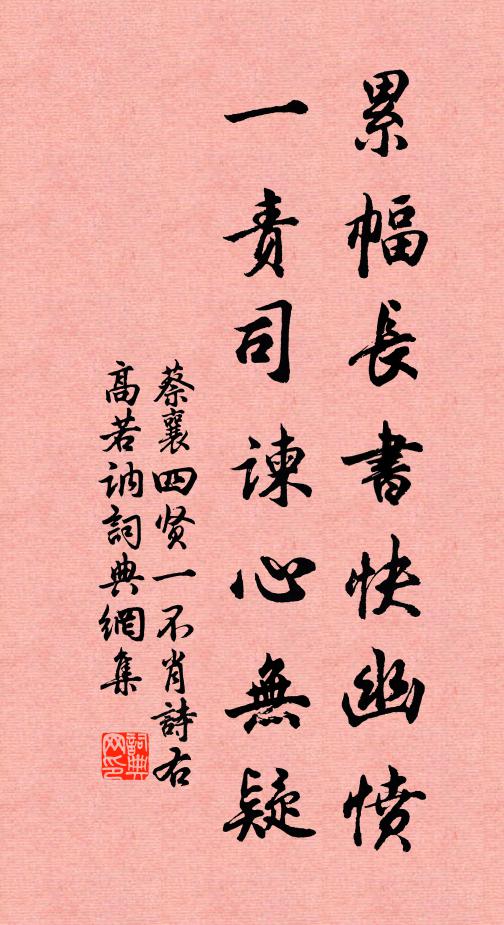 累幅長書快幽憤
一責司諫心無疑
蔡襄四贤一不肖詩右
高若訥詞典網集
詞典網印